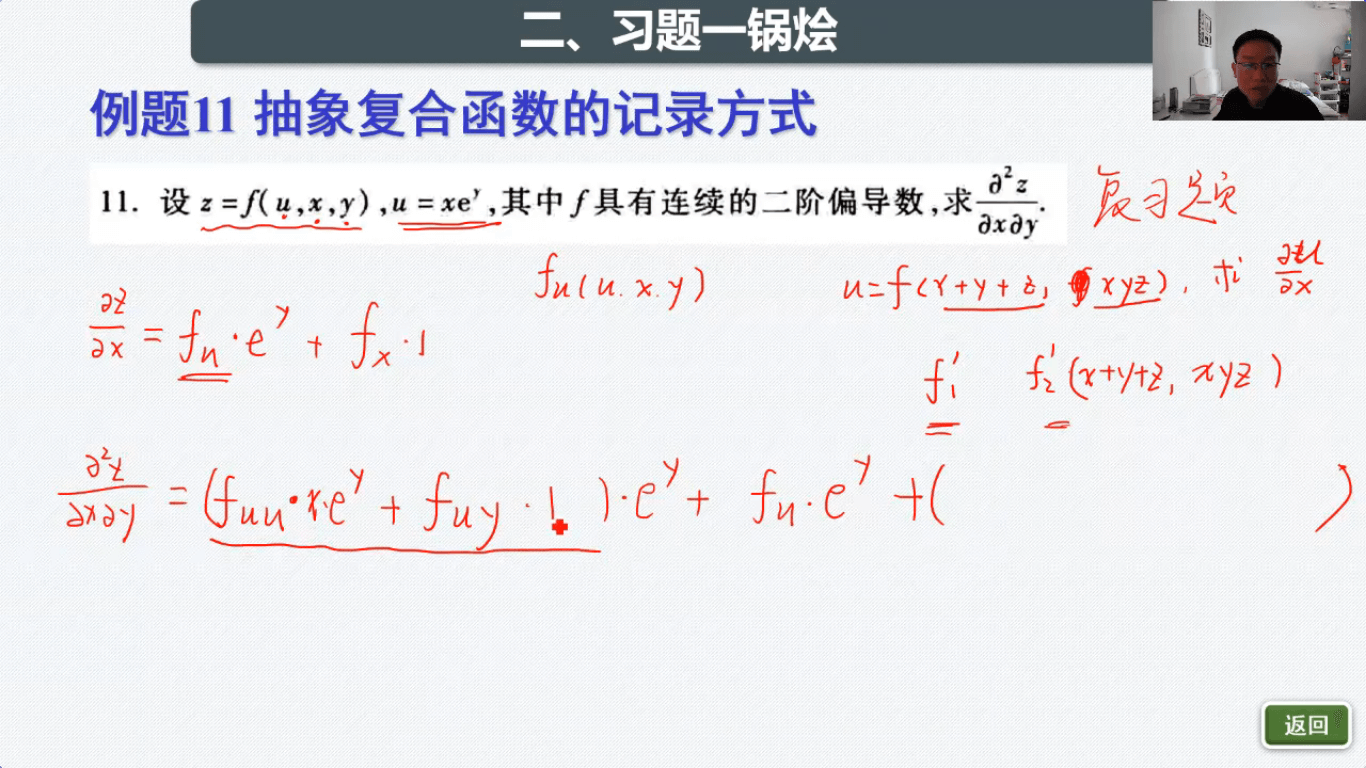 二、习题一锅烩
例题11 抽象复合函数的记录方式
11. 设 z=f(u,x,y),u=xeʸ,其中 f 具有连续的二阶偏导数,求 ∂²z/∂x∂y.
复习题
f_u(u.x.y)
u=f(x+y+z, xyz), 求 ∂u/∂x
∂z/∂x = f_u·eʸ + f_x·1
f₁′ f₂′(x+y+z, xyz)
∂²z/∂x∂y = (f_uu·x·eʸ + f_uy·1)·eʸ + f_u·eʸ + ( )
返回